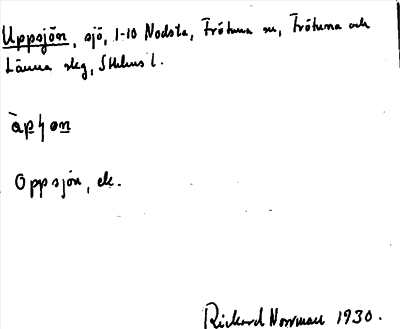 Uppsjön, sjö, 1-10 Nodsta, Frötuna sn, Frötuna och
Länna skg, Sthlms l.
Oppsjön, ek.
Rickard Norrman 1930.